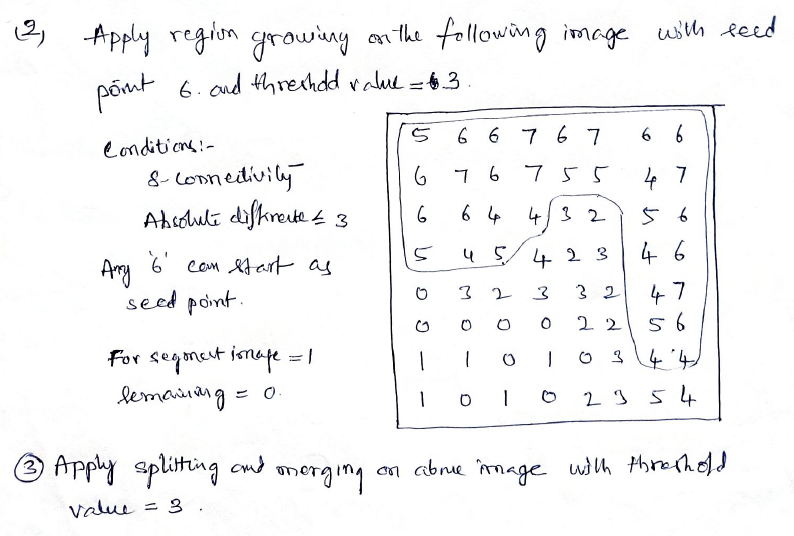 (2) Apply region growing on the following image with seed
point 6. and threshold value = 3.
Conditions:-
8-Connectivity
Absolute difference ≤ 3
Any '6' can start as
seed point.
For segment image = 1
Remaining = 0.
5 6 6 7 6 7 6 6
6 7 6 7 5 5 4 7
6 6 4 4 3 2 5 6
5 4 5 4 2 3 4 6
0 3 2 3 3 2 4 7
0 0 0 0 2 2 5 6
1 1 0 1 0 3 4 4
1 0 1 0 2 3 5 4
(3) Apply splitting and merging on above image with threshold
value = 3.